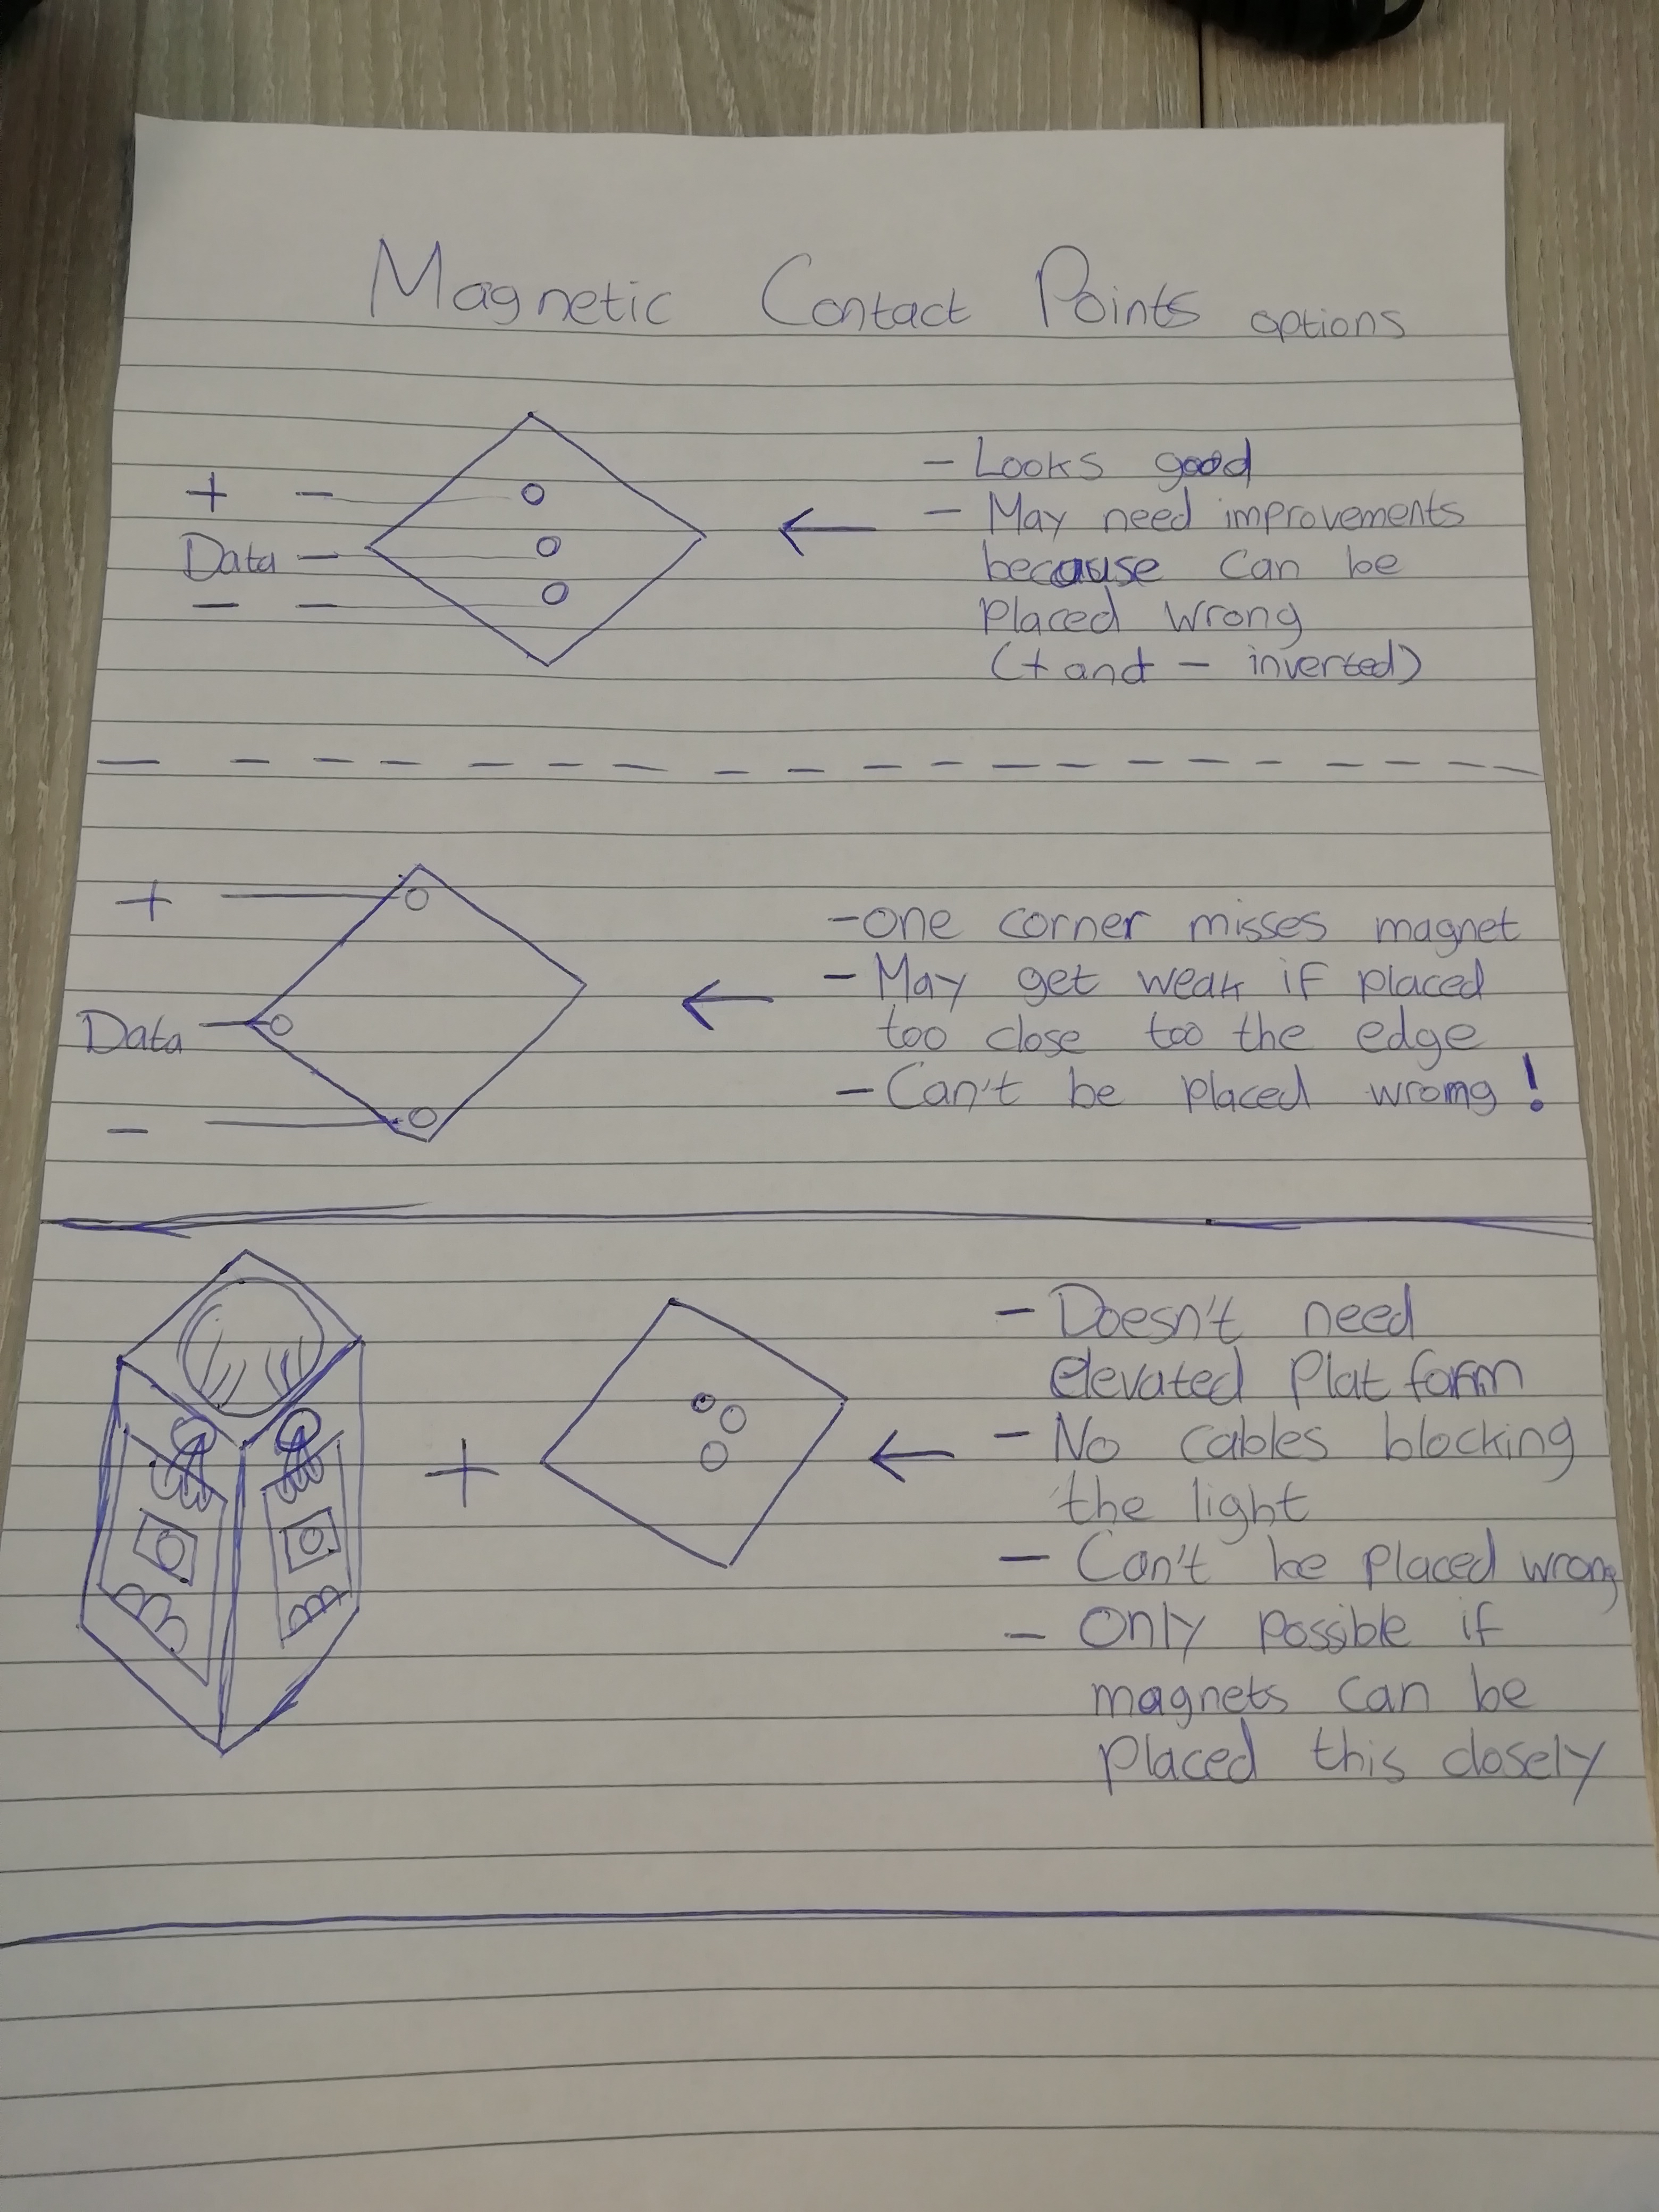 Magnetic Contact Points options
+ -
Data -
- -
- Looks good
- May need improvements
because can be
placed wrong
(+ and - inverted)
+
Data
-
- one corner misses magnet
- May get weak if placed
too close too the edge
- Can't be placed wromg !
+
- Doesn't need
elevated platform
- No cables blocking
the light
- Can't be placed wrong
- Only possible if
magnets can be
placed this closely